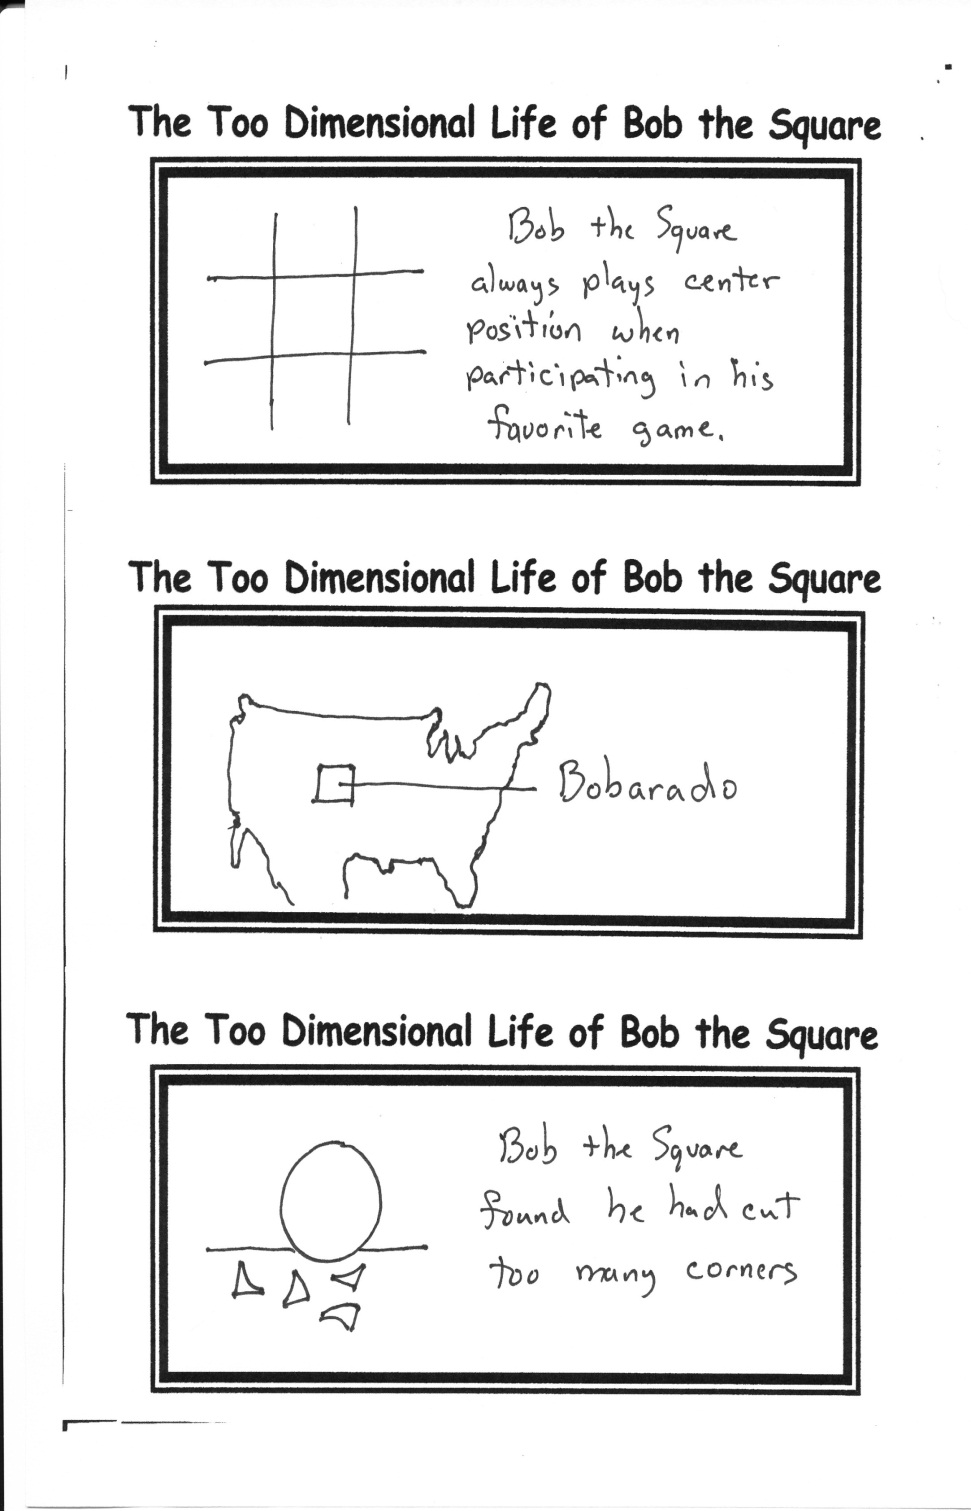 The Too Dimensional Life of Bob the Square
Bob the Square
always plays center
position when
participating in his
favorite game.
The Too Dimensional Life of Bob the Square
Bobarado
The Too Dimensional Life of Bob the Square
Bob the Square
found he had cut
too many corners